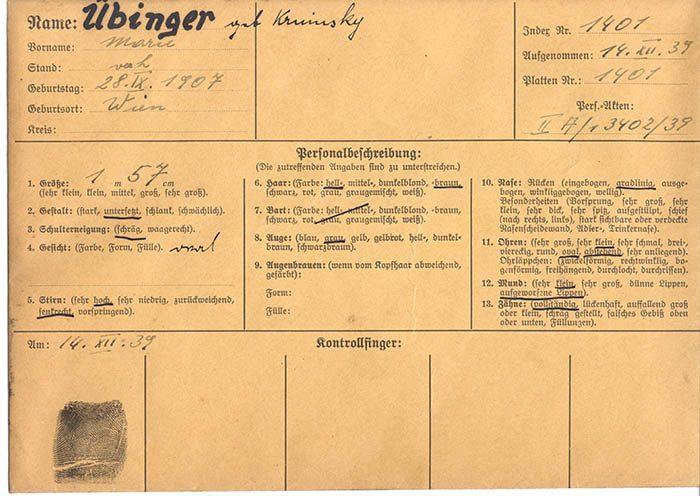 Name: Übinger geb Kruinsky
Vorname: Marie
Stand: verh
Geburtstag: 28. IX. 1907
Geburtsort: Wien
Kreis:
Index Nr. 1401
Aufgenommen: 14. XII. 39
Platten Nr.: 1401
Pers.-Akten:
II A/1 3402/39
Personalbeschreibung:
(Die zutreffenden Angaben sind zu unterstreichen.)
1. Größe: 1 m 57 cm
(sehr klein, klein, mittel, groß, sehr groß).
2. Gestalt: (stark, untersetzt, schlank, schwächlich).
3. Schulterneigung: (schräg, waagerecht).
4. Gesicht: (Farbe, Form, Fülle). oval
5. Stirn: (sehr hoch, sehr niedrig, zurückweichend,
senkrecht, vorspringend).
6. Haar: (Farbe: hell-, mittel-, dunkelblond, -braun,
schwarz, rot, grau, graugemischt, weiß).
7. Bart: (Farbe: hell-, mittel-, dunkelblond, -braun,
schwarz, rot, grau, graugemischt, weiß).
8. Auge: (blau, grau, gelb, gelbrot, hell-, dunkel-
braun, schwarzbraun).
9. Augenbrauen: (wenn vom Kopfhaar abweichend,
gefärbt):
Form:
Fülle:
10. Nase: Rücken (eingebogen, gradlinig, ausge-
bogen, winkliggebogen, wellig).
Besonderheiten (Vorsprung, sehr groß, sehr
klein, sehr dick, sehr spitz, aufgestülpt, schief
(nach rechts, links), stark sichtbare oder verdeckte
Nasenscheidewand, Adler-, Trinkernase).
11. Ohren: (sehr groß, sehr klein, sehr schmal, drei-
viereckig, rund, oval, abstehend, sehr anliegend).
Ohrläppchen: (zwickelförmig, rechtwinklig, bo-
genförmig, freihängend, durchlocht, durchrissen).
12. Mund: (sehr klein, sehr groß, dünne Lippen,
aufgeworfene Lippen).
13. Zähne: (vollständig, lückenhaft, auffallend groß
oder klein, schräg gestellt, falsches Gebiß oben
oder unten, Füllungen).
Am: 14. XII. 39
Kontrollfinger: